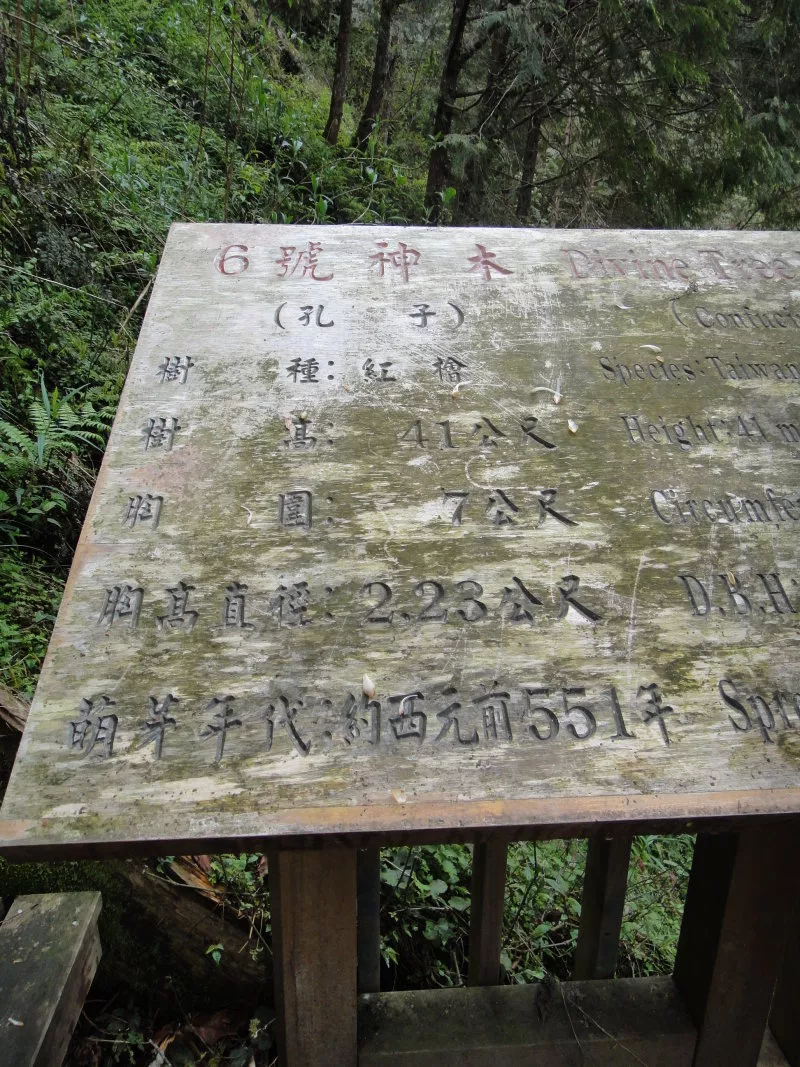 6號神木 Divine Tree
(孔 子) (Confuci
樹 種：紅檜 Species: Taiwan
樹 高： 41公尺 Height: 41 m
胸 圍： 7公尺 Circumfe
胸高直徑：2.23公尺 D.B.H
萌芽年代：約西元前551年 Spr